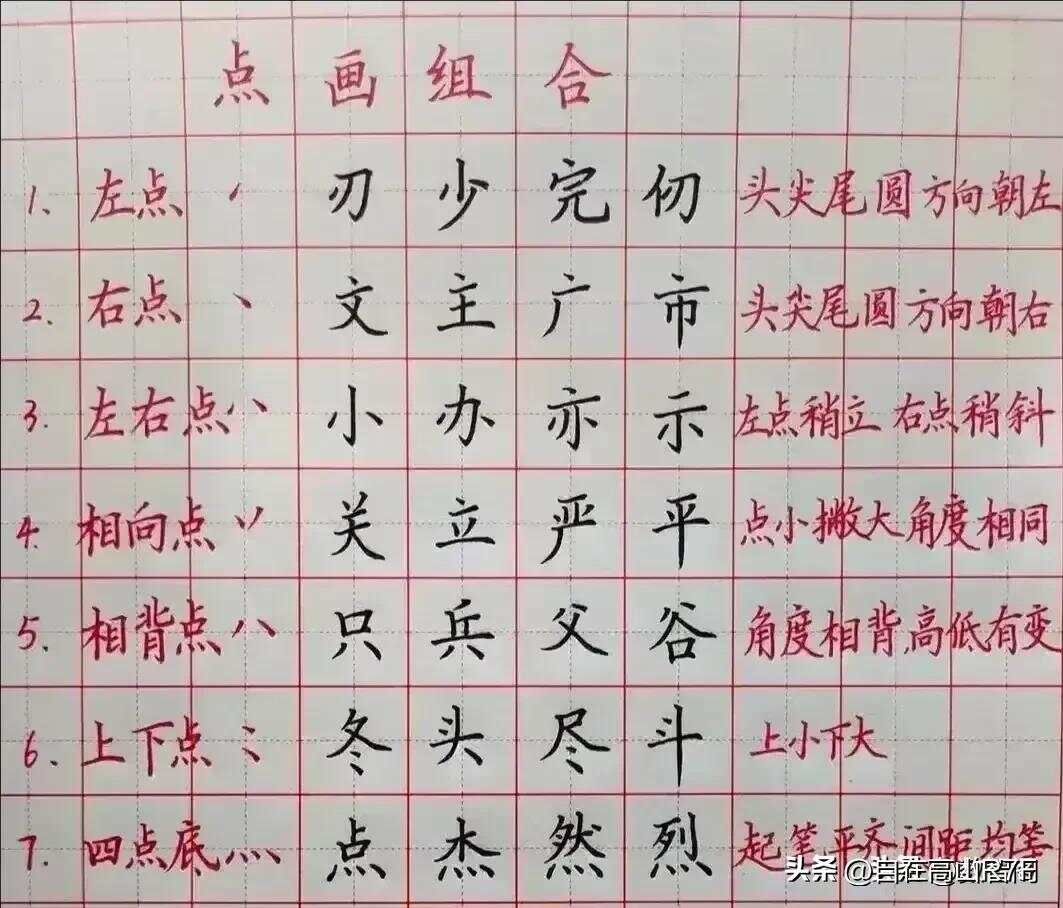 点画组合
1. 左点 ㇓ 刃 少 完 仞 头尖尾圆方向朝左
2. 右点 丶 文 主 广 市 头尖尾圆方向朝右
3. 左右点 小 办 亦 示 左点稍立 右点稍斜
4. 相向点 丷 关 立 严 平 点小撇大角度相同
5. 相背点 八 只 兵 父 谷 角度相背,高低有变
6. 上下点 冬 头 尽 斗 上小下大
7. 四点底 灬 点 杰 然 烈 起笔平齐间距均等
头条